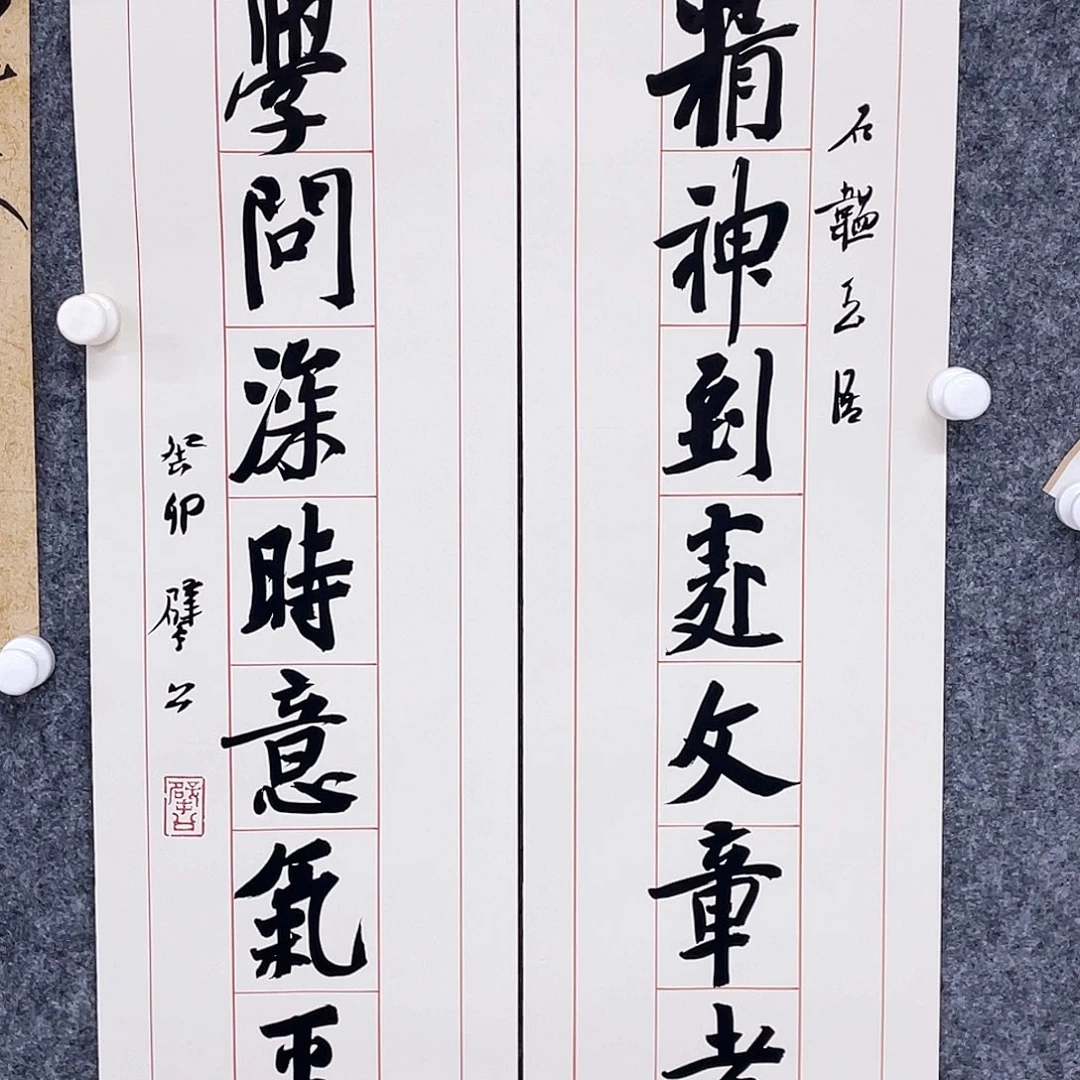 石韞玉
精神到處文章老
學問深時意氣平
癸卯 擘公